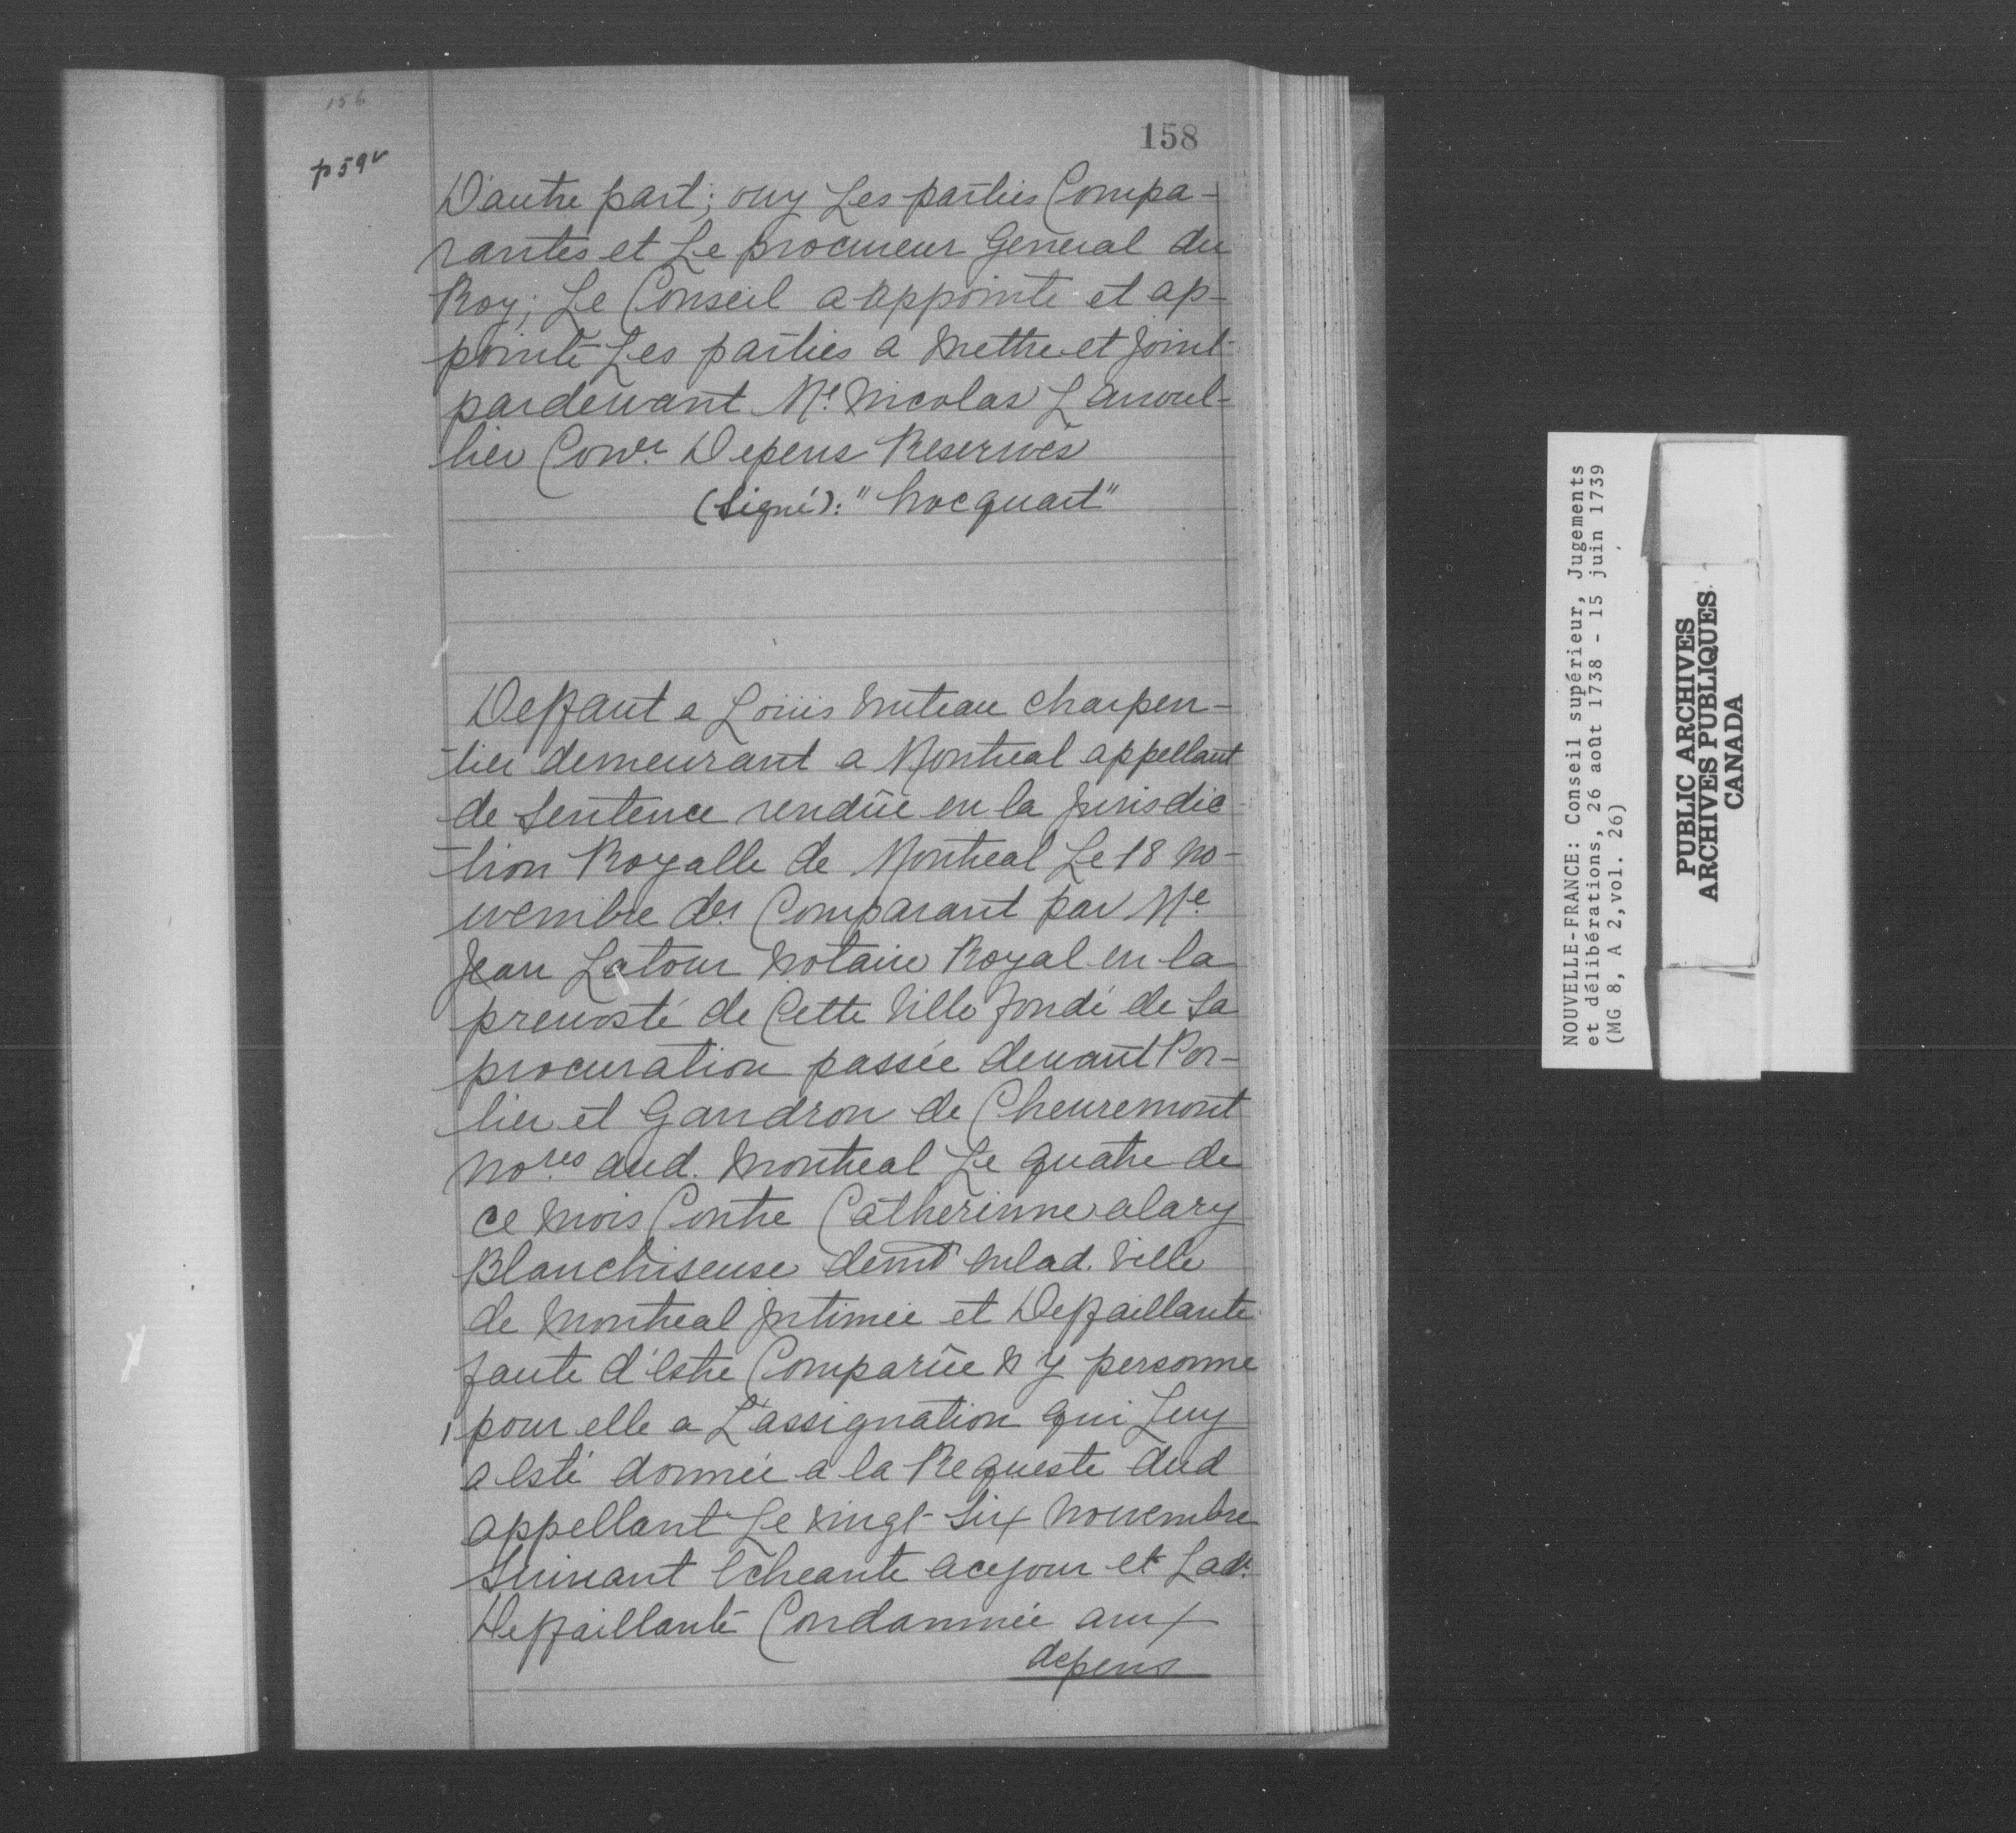 156
158
p 59v
D'autre part; ouy Les parties Compa-
rantes et Le procureur General du
Roy; Le Conseil a appointé et ap-
pointe Les parties a Mettre et Joint
pardeuant Me. Nicolas Lanoul-
lier Conser. Depens Reservés
(signé): "hocquart"
Deffaut a Loüis Muteau charpen-
tier demeurant a Montreal appellant
de Sentence rendüe en la Jurisdic-
tion Royalle de Montreal Le 18 no-
uembre der. Comparant par Me.
Jean Latour Notaire Royal en la
preuosté de Cette Ville fondé de Sa
procuration passée deuant Por-
lier et Gaudron de Cheuremont
nores. aud. Montreal Le quatre de
ce mois Contre Catherinne alary
Blanchiseuse demt. enlad. Ville
de Montreal Intimée et Deffaillante
faute d'Estre Comparüe N'y personne
pour elle a L'assignation qui Luy
a Esté donnée a la Requeste dud
appellant Le Vingt-Six Nouembre
Suiuant Echeante acejour et Lade.
Deffaillante Condamnée aux
depens
NOUVELLE-FRANCE: Conseil supérieur, Jugements
et délibérations, 26 août 1738 - 15 juin 1739
(MG 8, A 2, vol. 26)
PUBLIC ARCHIVES
ARCHIVES PUBLIQUES
CANADA